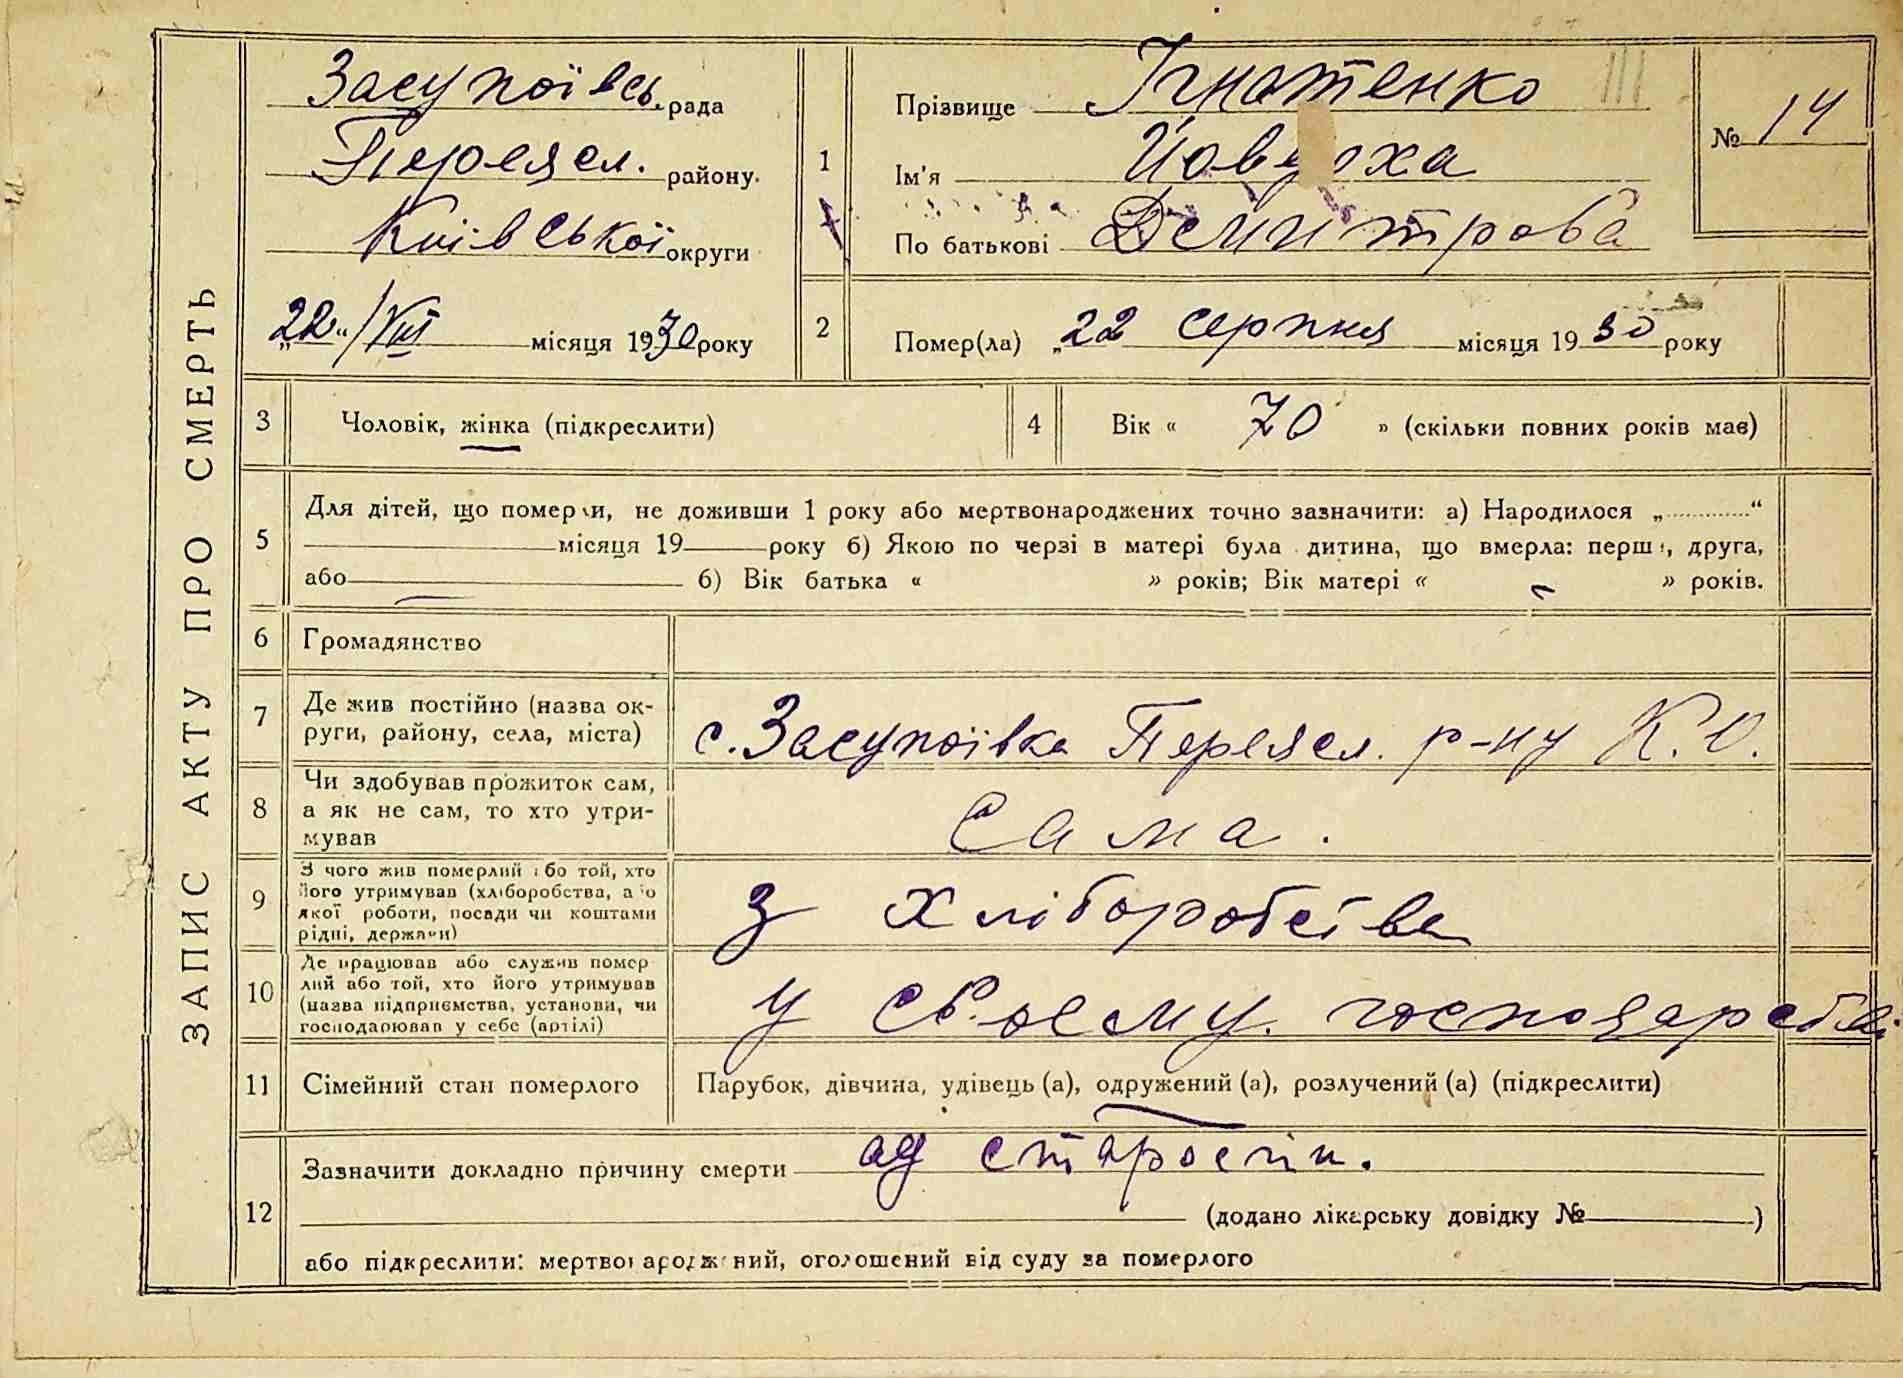 ЗАПИС АКТУ ПРО СМЕРТЬ
Засупоївсь. рада
Переясл. району.
Київської округи
„22“/VIII місяця 1930 року
1
Прізвище Ігнатенко
Ім'я
По батькові Демитрова
№ 14
2
Помер(ла) „22 серпня місяця 1930 року
3
Чоловік, жінка (підкреслити)
4
Вік « 70 » (скільки повних років має)
5
Для дітей, що померли, не доживши 1 року або мертвонароджених точно зазначити: а) Народилося „ “
місяця 19 року б) Якою по черзі в матері була дитина, що вмерла: перша, друга,
або б) Вік батька « » років; Вік матері « » років.
6
Громадянство
7
Де жив постійно (назва ок-
руги, району, села, міста)
с. Засупоївка Переясл. р-ну К. О.
8
Чи здобував прожиток сам,
а як не сам, то хто утри-
мував
Сама.
9
З чого жив померлий або той, хто
його утримував (хліборобства, або
якої роботи, посади чи коштами
рідні, держави)
З хліборобства
10
Де працював або служив помер
лий або той, хто його утримував
(назва підприємства, установи, чи
господарював у себе (артілі)
у своєму господарстві
11
Сімейний стан померлого
Парубок, дівчина, удівець (а), одружений (а), розлучений (а) (підкреслити)
12
Зазначити докладно причину смерти ад старости.
(додано лікарську довідку № )
або підкреслити: мертвонароджений, оголошений від суду за померлого